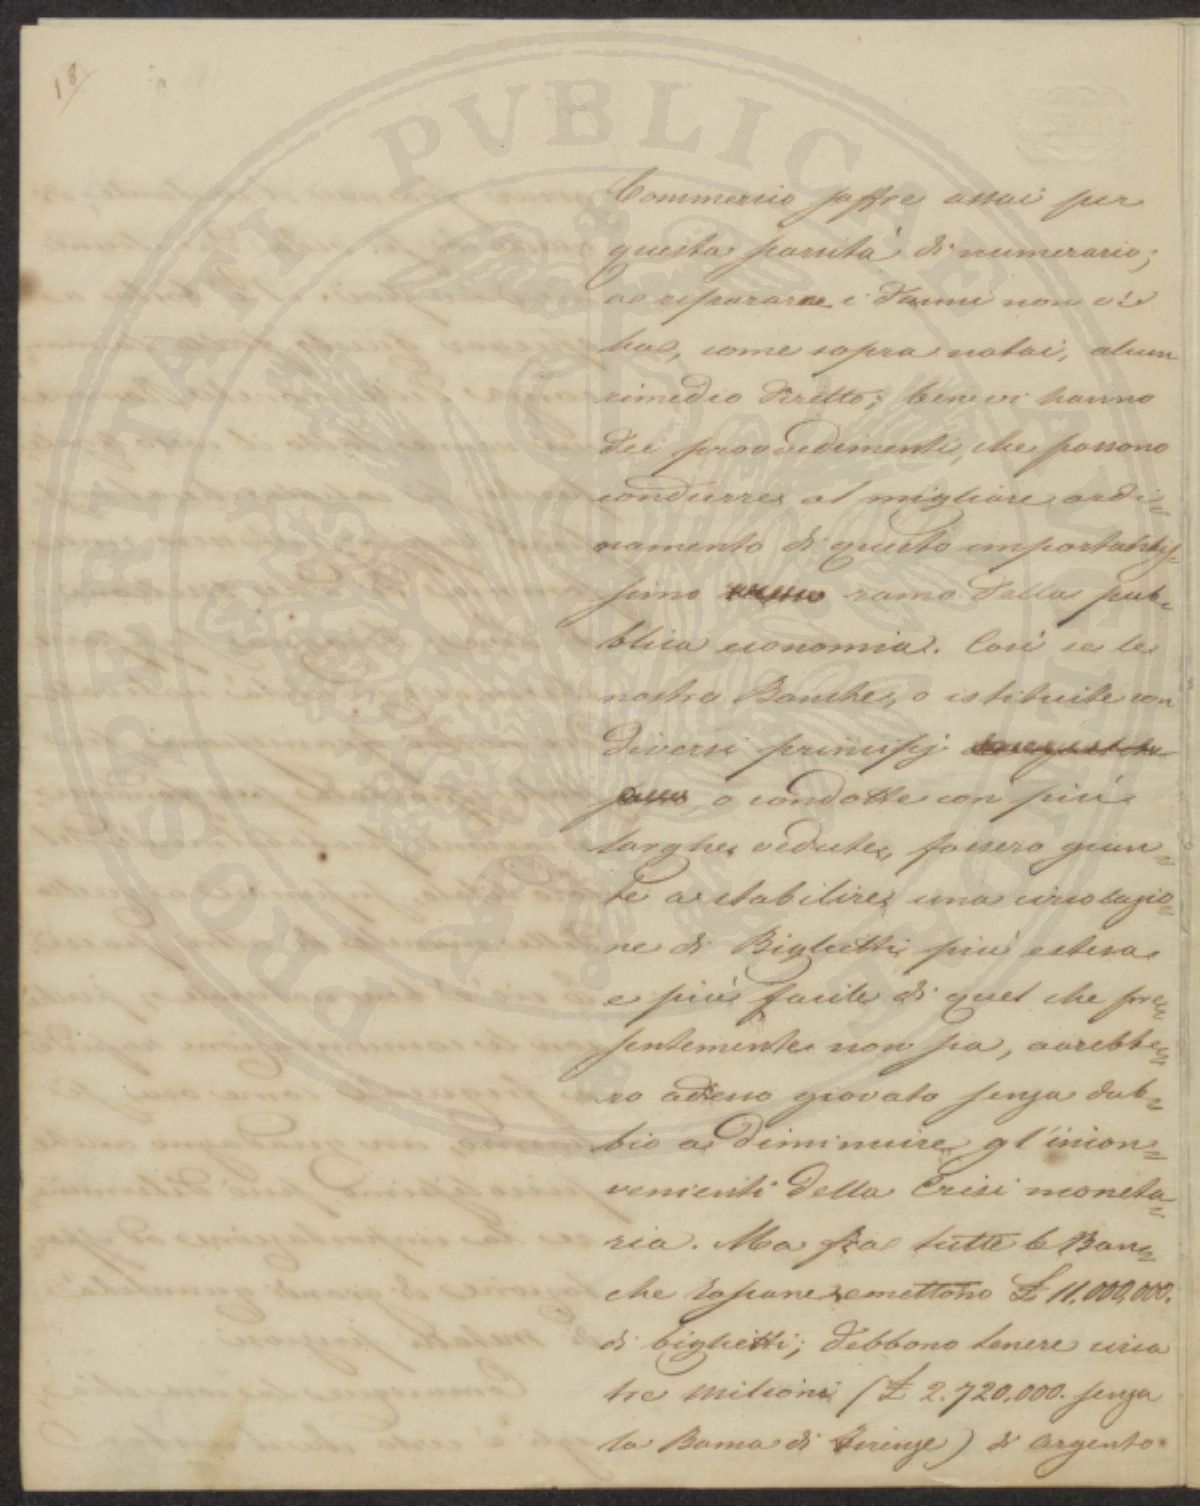 18
PROSPERITATI PVBLICAE AVGENDAE
Commercio soffre assai per
questa parsità di numerario;
a ripararne i danni non vi
ha, come sopra notai, alcun
rimedio diretto; bene vi hanno
dei provvedimenti, che possono
condurre al migliore ordi=
namento di questo importantis=
simo ramo della pub=
blica economia. Così se le
nostre Banche, o istituite con
diversi principj
, o condotte con più
larghe vedute, fossero giun=
te a stabilire una circolazio=
ne di Biglietti più estesa
e più facile di quel che pre=
sentemente non sia, avrebbe=
ro adesso giovato senza dub=
bio a diminuire gl'incon=
venienti della Crisi moneta=
ria. Ma fra tutte le Ban=
che Toscane emettono £ 11.000,000.
di biglietti; debbono tenere circa
tre milioni (£ 2.720,000. senza
la Banca di Firenze) di argento